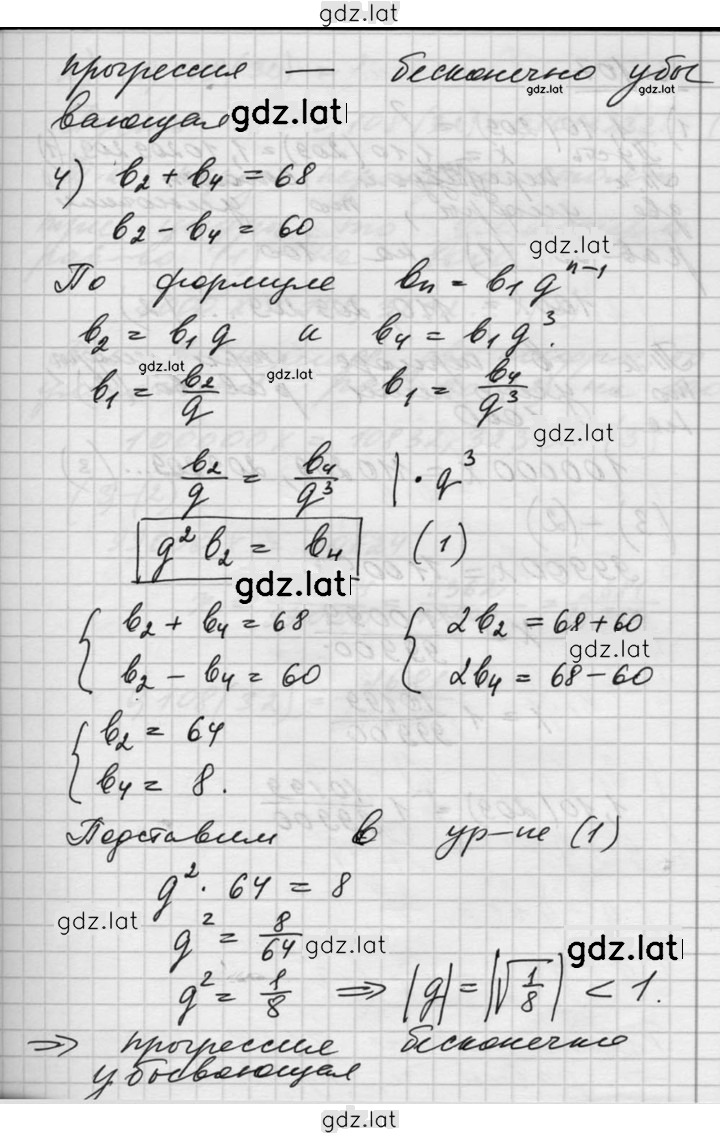 gdz.lat
прогрессия — бесконечно убы
gdz.lat gdz.lat
вающая gdz.lat
4) b₂ + b₄ = 68
b₂ − b₄ = 60
gdz.lat
По формуле bₙ = b₁ qⁿ⁻¹
b₂ = b₁ q и b₄ = b₁ q³.
gdz.lat gdz.lat
b₁ = b₂/q b₁ = b₄/q³
gdz.lat
b₂/q = b₄/q³ | · q³
q² b₂ = b₄ (1)
gdz.lat
{ b₂ + b₄ = 68 { 2b₂ = 68 + 60
gdz.lat
b₂ − b₄ = 60 2b₄ = 68 − 60
{ b₂ = 64
b₄ = 8.
Подставим в ур-ие (1)
q² · 64 = 8
gdz.lat
q² = 8/64 gdz.lat gdz.lat
q² = 1/8 ⇒ |q| = |√(1/8)| < 1.
⇒ прогрессия бесконечно
убывающая
gdz.lat